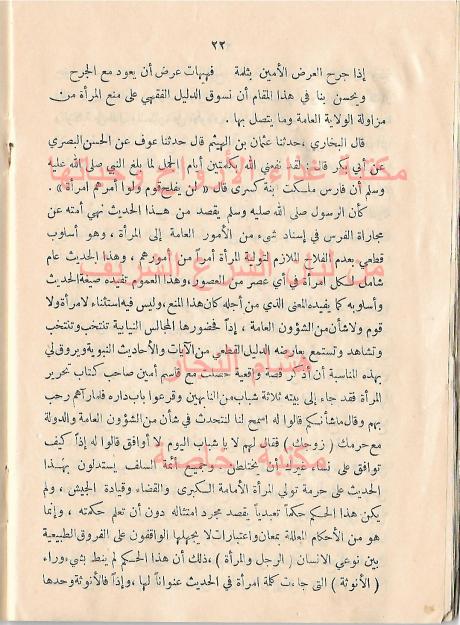 ٢٢
إذا جرح العرض الأمين بثلمة فهيهات عرض أن يعود مع الجرح
ويحسن بنا في هذا المقام أن نسوق الدليل الفقهي على منع المرأة من
مزاولة الولاية العامة وما يتصل بها .
قال البخاري ، حدثنا عثمان بن الهيثم قال حدثنا عوف عن الحسن البصري
عن أبي بكر قال : لقد نفعني الله بكلمتين أيام الجمل لما بلغ النبي صلى الله عليه
وسلم أن فارس ملكت ابنة كسرى قال « لن يفلح قوم ولوا أمرهم امرأة » .
كأن الرسول صلى الله عليه وسلم يقصد من هذا الحديث نهي أمته عن
مجاراة الفرس في إسناد شيء من الأمور العامة إلى المرأة ، وهو أسلوب
قطعي بعدم الفلاح الملازم لتولية المرأة أمراً من أمورهم ، وهذا الحديث عام
شامل لكل امرأة في أي عصر من العصور، وهذا العموم تفيده صيغة الحديث
وأسلوبه كما يفيده المعنى الذي من أجله كان هذا المنع، وليس فيه استثناء لامرأة ولا
قوم ولا شأن من الشؤون العامة ، إذاً فحضورها المجالس النيابية تنتخب وتنتخب
وتشاهد وتستمع يعارضه الدليل القطعي من الآيات والأحاديث النبوية ويروق لي
بهذه المناسبة أن أذكر قصة واقعية حصلت مع قاسم أمين صاحب كتاب تحرير
المرأة فقد جاء إلى بيته ثلاثة شباب من النابهين وقرعوا باب داره فلما رآهم رحب
بهم وقال ما شأنكم قالوا له اسمح لنا لنتحدث في شأن من الشؤون العامة والدولة
مع حرمك ( زوجك ) فقال لهم لا يا شباب اليوم لا أوافق قالوا له إذاً كيف
توافق على نساء غيرك أن يختلطن . وجميع أئمة السلف يستدلون بهذا
الحديث على حرمة تولي المرأة الأمامة الكبرى والقضاء وقيادة الجيش ، ولم
يكن هذا الحكم حكماً تعبدياً يقصد مجرد امتثاله دون أن تعلم حكمته ، وإنما
هو من الأحكام المعللة بمعان واعتبارات لا يجهلها الواقفون على الفروق الطبيعية
بين نوعي الانسان ( الرجل والمرأة ) ، ذلك أن هذا الحكم لم ينط بشيء وراء
( الأنوثة ) التي جاءت كلمة امرأة في الحديث عنواناً لها ، وإذاً فالأنوثة وحدها
مكتبة غذاء الأرواح وحياتها
من لبنان الشرع الشريف
هشام النجار
مكتبة خاصة